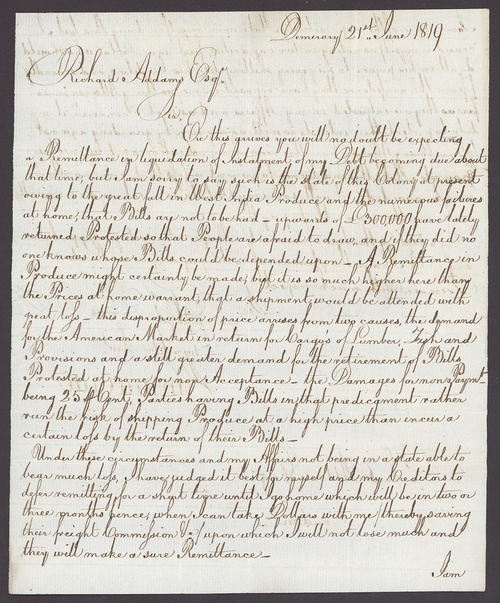 Demerary 21st June 1819
Richard Addams Esqr.
Sir,
Ere this arrives you will no doubt be expecting
a Remittance in liquidation of Instalment of my Debt becoming due about
that time, but I am sorry to say such is the state of this Colony at present
owing to the great fall in West India Produce and the numerous failures
at home, that Bills are not to be had – upwards of £300,000 have lately
returned Protested so that People are afraid to draw, and if they did no
one knows whose Bills could be depended upon – A Remittance in
Produce might certainly be made, but it is so much higher here than
the Prices at home warrant, that a shipment would be attended with
great loss – this disproportion of price arrises from two causes, the demand
for the American Market in return for Cargos of Lumber, Fish and
Provisions and a still greater demand for the retirement of Bills
Protested at home for non Acceptance – the Damages for non Paymt.
being 25 ⅌ Cent, Parties having Bills in that predicament rather
run the risk of shipping Produce at a high price than incur a
certain loss by the return of their Bills –
Under these circumstances and my Affairs not being in a state able to
bear much loss, I have judged it best for myself and my Creditors to
defer remitting for a short time until I go home which will be in two or
three months hence, when I can take Dollars with me (thereby saving
their freight Commission &c) upon which I will not lose much and
they will make a sure Remittance –
I am